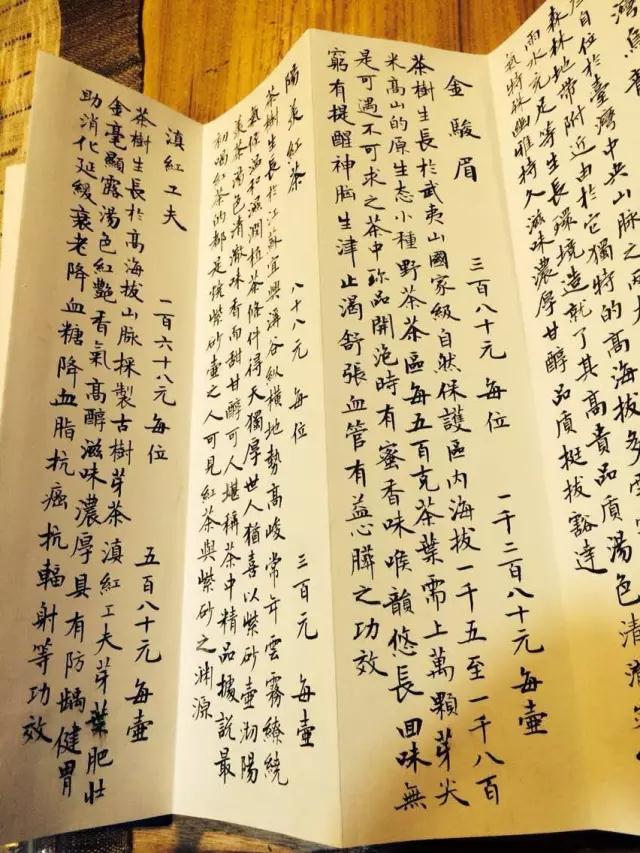 自位於臺灣中央山脈之兩
森林地帶附近由於它獨特的高
雨水充足等生長環境造就了其高貴品質湯色清
氣特殊幽雅持久滋味濃厚甘醇品質挺拔豁達
金駿眉 三百八十元 每位 一千二百八十元 每壺
茶樹生長於武夷山國家級自然保護區内海拔一千五至一千八百
米高山的原生态小種野茶茶區每五百克茶葉需上萬顆芽尖
是可遇不可求之茶中珍品開泡時有蜜香味喉韻悠長回味無
窮有提醒神脑生津止渴舒張血管有益心臟之功效
陽羨紅茶 八十八元 每位 三百元 每壺
茶樹生長於江蘇宜興澗谷縱横地勢高峻常年雲霧繚繞
氣候温和濕潤植茶條件得天獨厚世人猶喜以紫砂壺沏陽
羨茶湯色清澈味香而甜甘醇可人堪稱茶中精品據説最
初喝紅茶的都是玩紫砂壺之人可見紅茶與紫砂之淵源
滇紅工夫 一百六十八元 每位 五百八十元 每壺
茶樹生長於高海拔山脉採製古樹芽茶滇紅工夫芽葉肥壯
金毫顯露湯色紅艷香氣高醇滋味濃厚具有防齲健胃
助消化延緩衰老降血糖降血脂抗癌抗輻射等功效